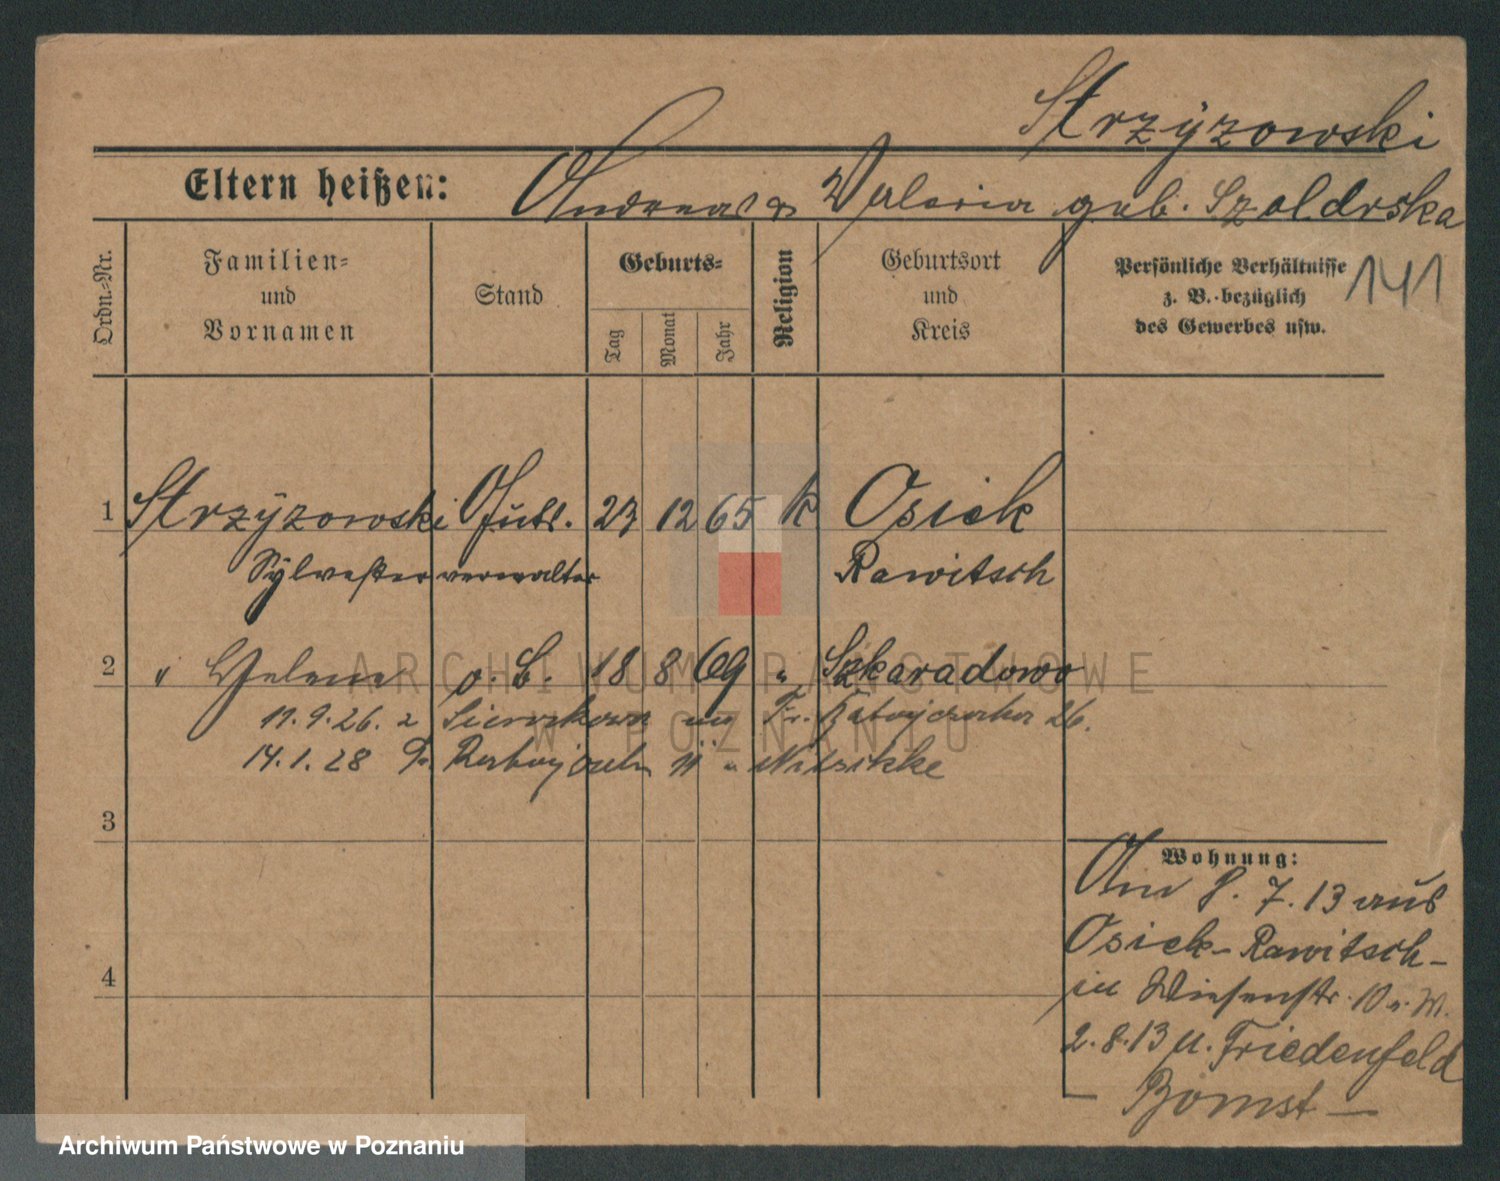 Strzÿzowski
Eltern heißen: Andreas & Valeria geb. Szoldrska
Ordn.-Nr.
Familien-
und
Vornamen
Stand
Geburts-
Tag
Monat
Jahr
Religion
Geburtsort
und
Kreis
Persönliche Verhältnisse
z. B. bezüglich
des Gewerbes usw.
141
1 Strzÿzowski Guts. 23 12 65 k Osiek
Sylvester verwalter Rawitsch
2 " Helene o. B. 18 8 69 " Szkaradowo
11.9.26. Fr. 26.
14.1.28
3
4
Wohnung:
Am 8. 7. 13 aus
Osiek - Rawitsch -
in Wiesenstr. 10
2.8.13 Friedenfeld
- Bomst -
ARCHIWUM PAŃSTWOWE
W POZNANIU
Archiwum Państwowe w Poznaniu